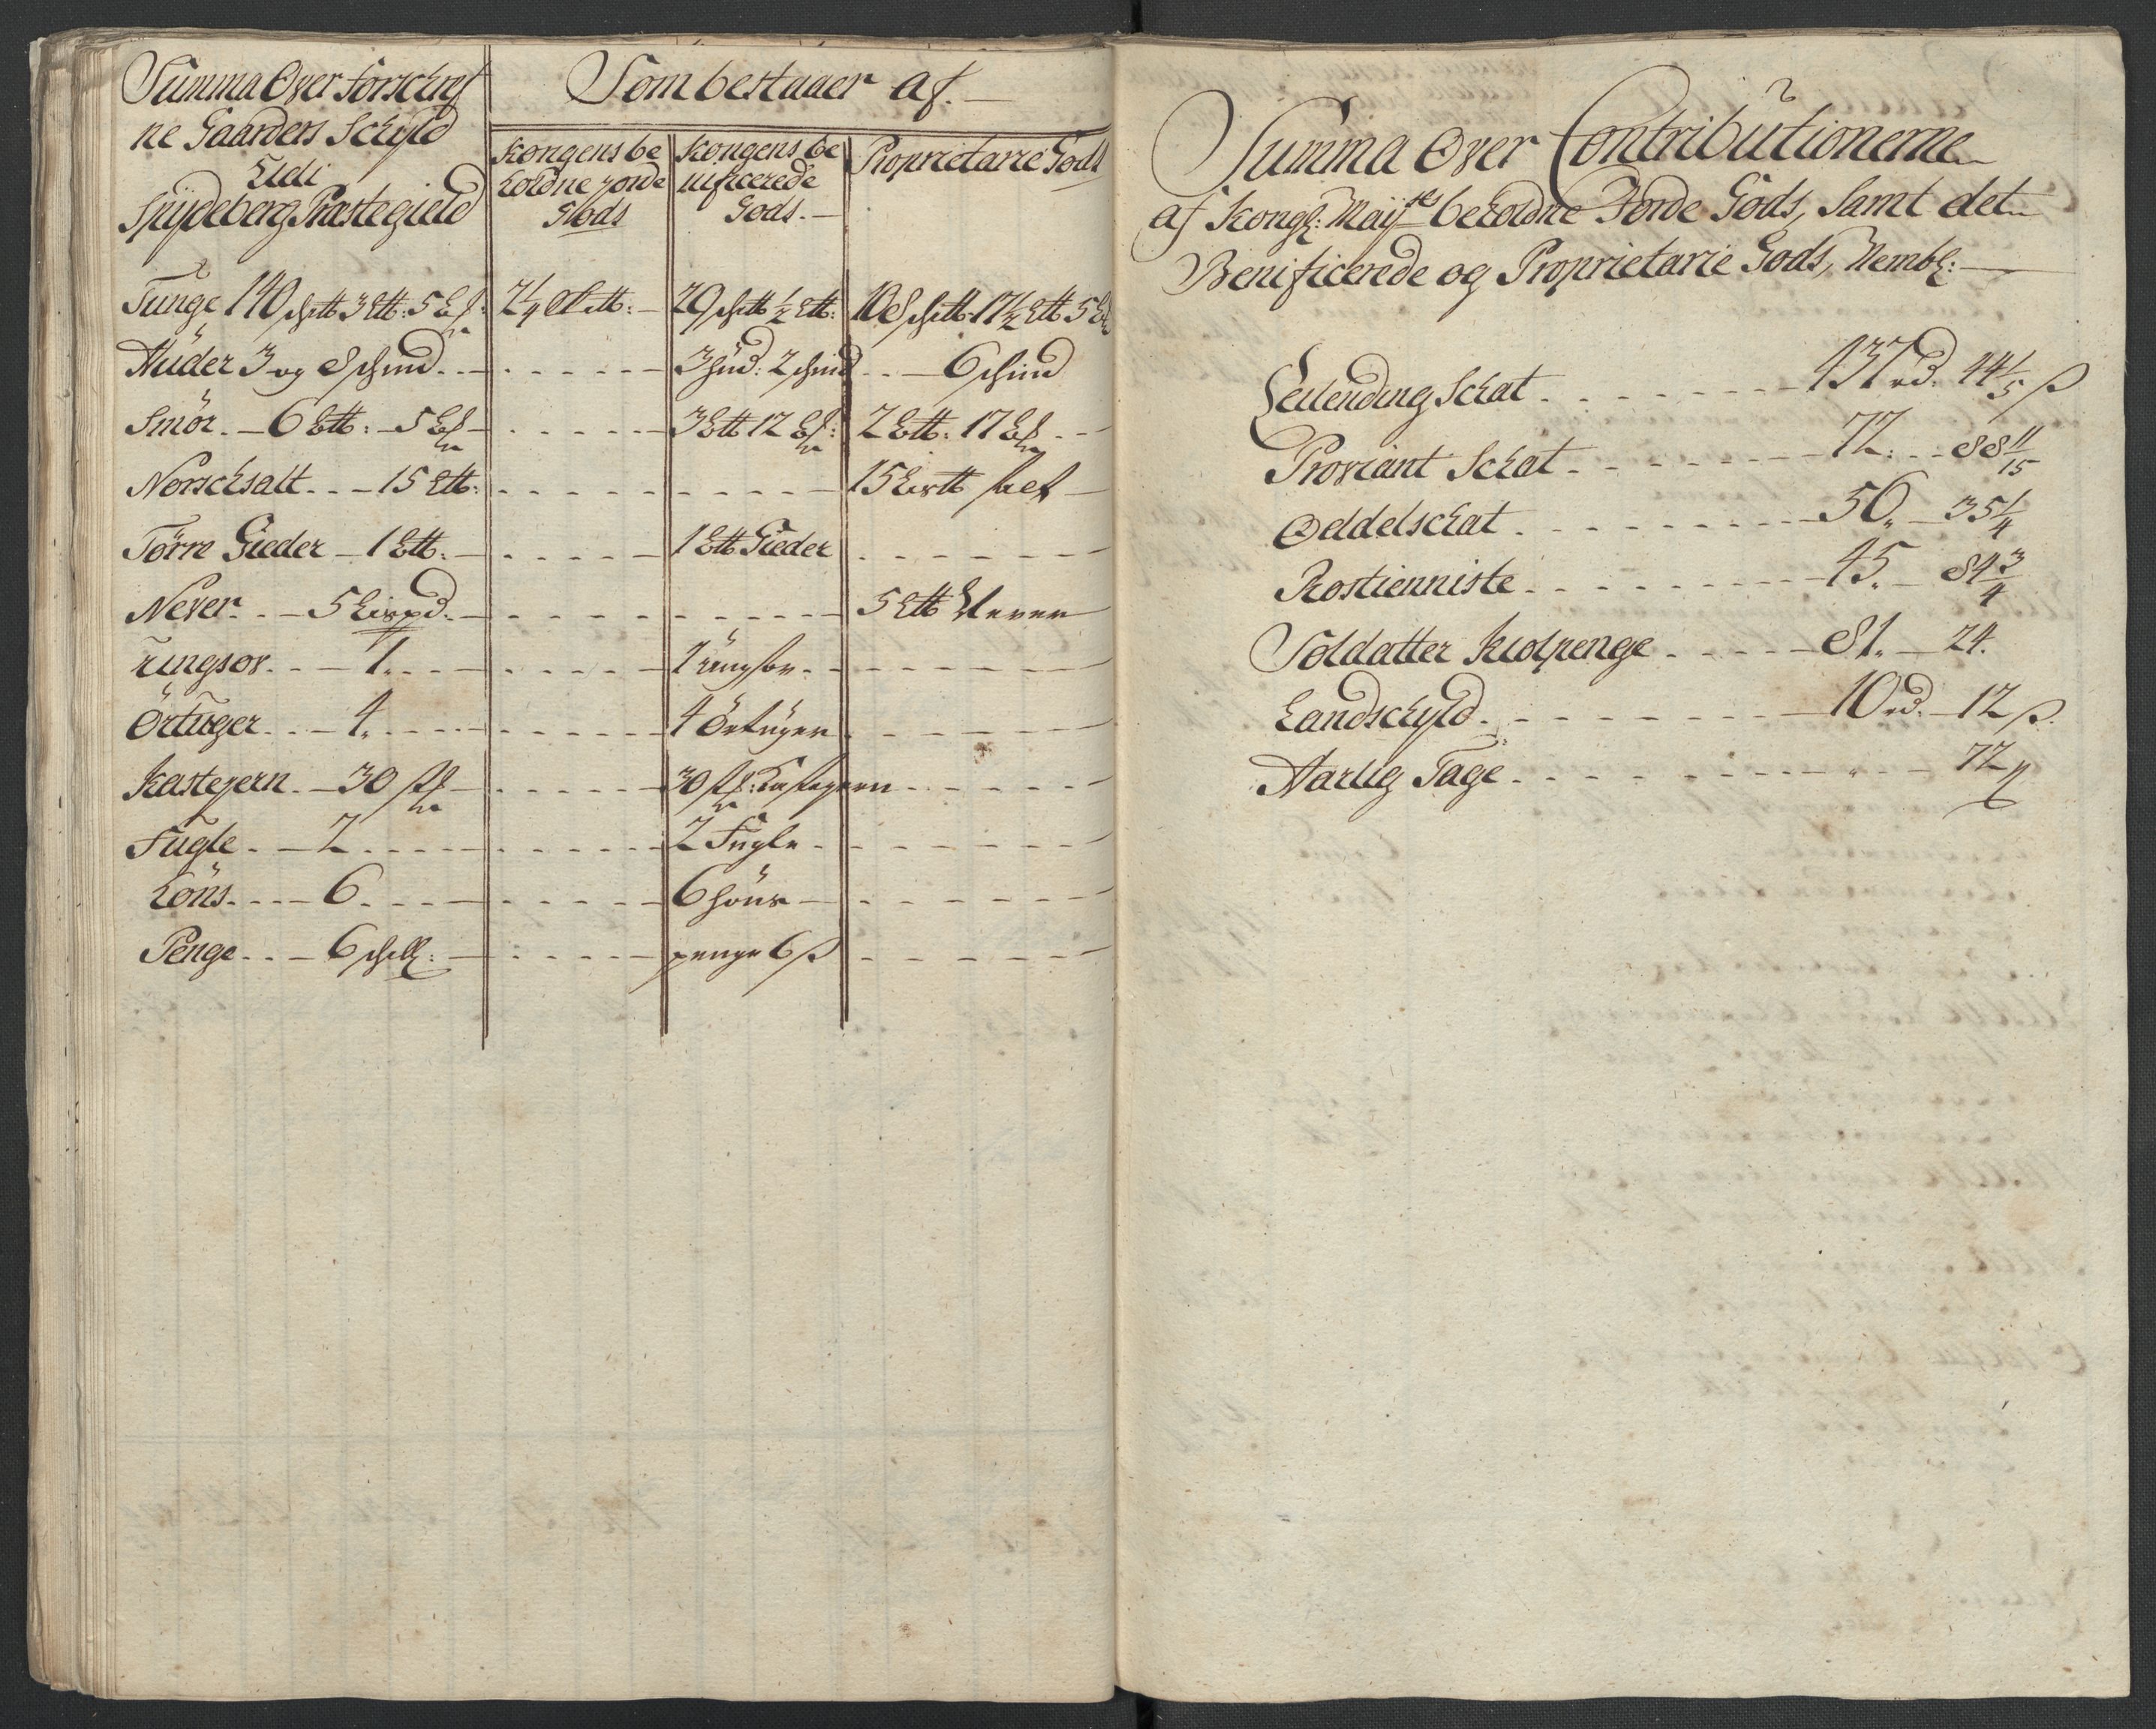 Summa Over forschref
ne Gaarders Schyld
Udi
Spydeberg Præstegield
Som bestaaer af.
Kongens be
holdne Jorde
Gods
Kongens be
nificerede
Gods.
Proprietarie Gods
Tunge 140 schtt 3 Ltt: 5
29 schtt ½ Ltt:
108 schtt. 17½ Ltt 5
Huder 3 og 8 schind
3 hud: 2 schind
6 schind
Smör. 6 Ltt: 5
3 Ltt 12
2 Ltt: 17
Norsch salt 15 Ltt:
15 Listt salt
Törre Gieder 1 Ltt:
1 Ltt Gieder
Never. 5 Lispd.
5 Ltt Never
1.
Örtuger 4.
4 Örtuger
Kastejern. 30
30 Kastejern
Fugle 2
2 Fugle
Höns. 6
6 Höns
Penge 6 schll:
penge 6 ß
Summa Over Contributionerne
af Kongl: Maÿts beholdne Jorde Gods, Samt det
Benificerede og Proprietarie Gods, Nembl:
Leilending Schat 437 rd. 44⅕ ß
Proviant Schat 72. 88 11/15
Oddelschat 56. 35¼
Rostienniste 45. 84¾
Soldatter Kiolpenge 81. 24.
Landschyld. 10 rd. 12 ß.
Aarlig Tage 72